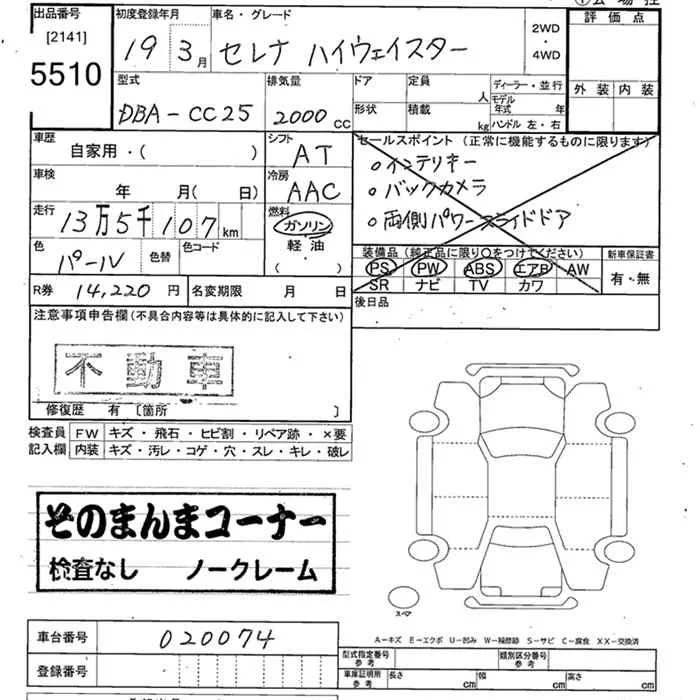 会場控
出品番号 初度登録年月 車名・グレード 評価点
[2141]
5510
19 3月 セレナ ハイウェイスター 2WD・4WD
型式 排気量 ドア 定員 人 ディーラー・並行 外装 内装
DBA-CC25 2000cc 形状 積載 kg モデル年式 年 ハンドル 左・右
車歴 シフト セールスポイント (正常に機能するものに限ります)
自家用・( ) AT
・インテリキー
車検 冷房
年 月( 日) AAC
・バックカメラ
走行 燃料
13万5千107km ガソリン
・両側パワースライドドア
軽油
( )
色 色替 色コード
パール
装備品 (純正品に限り○をつけてください) 新車保証書
PS PW ABS エアB AW 有・無
SR ナビ TV カワ
R券 14,220円 名変期限 月 日 後日品
注意事項申告欄(不具合内容等は具体的に記入して下さい)
不動車
修復歴 有 [箇所 ]
検査員 FW キズ・飛石・ヒビ割・リペア跡・×要
記入欄 内装 キズ・汚レ・コゲ・穴・スレ・キレ・破レ
そのまんまコーナー
検査なし ノークレーム
スペア
A-キズ E-エクボ U-凹み W-補修跡 S-サビ C-腐食 XX-交換済
車台番号 020074
登録番号
型式指定番号 参考 類別区分番号 参考
車庫証明用 参考 長さ cm 幅 cm 高さ cm